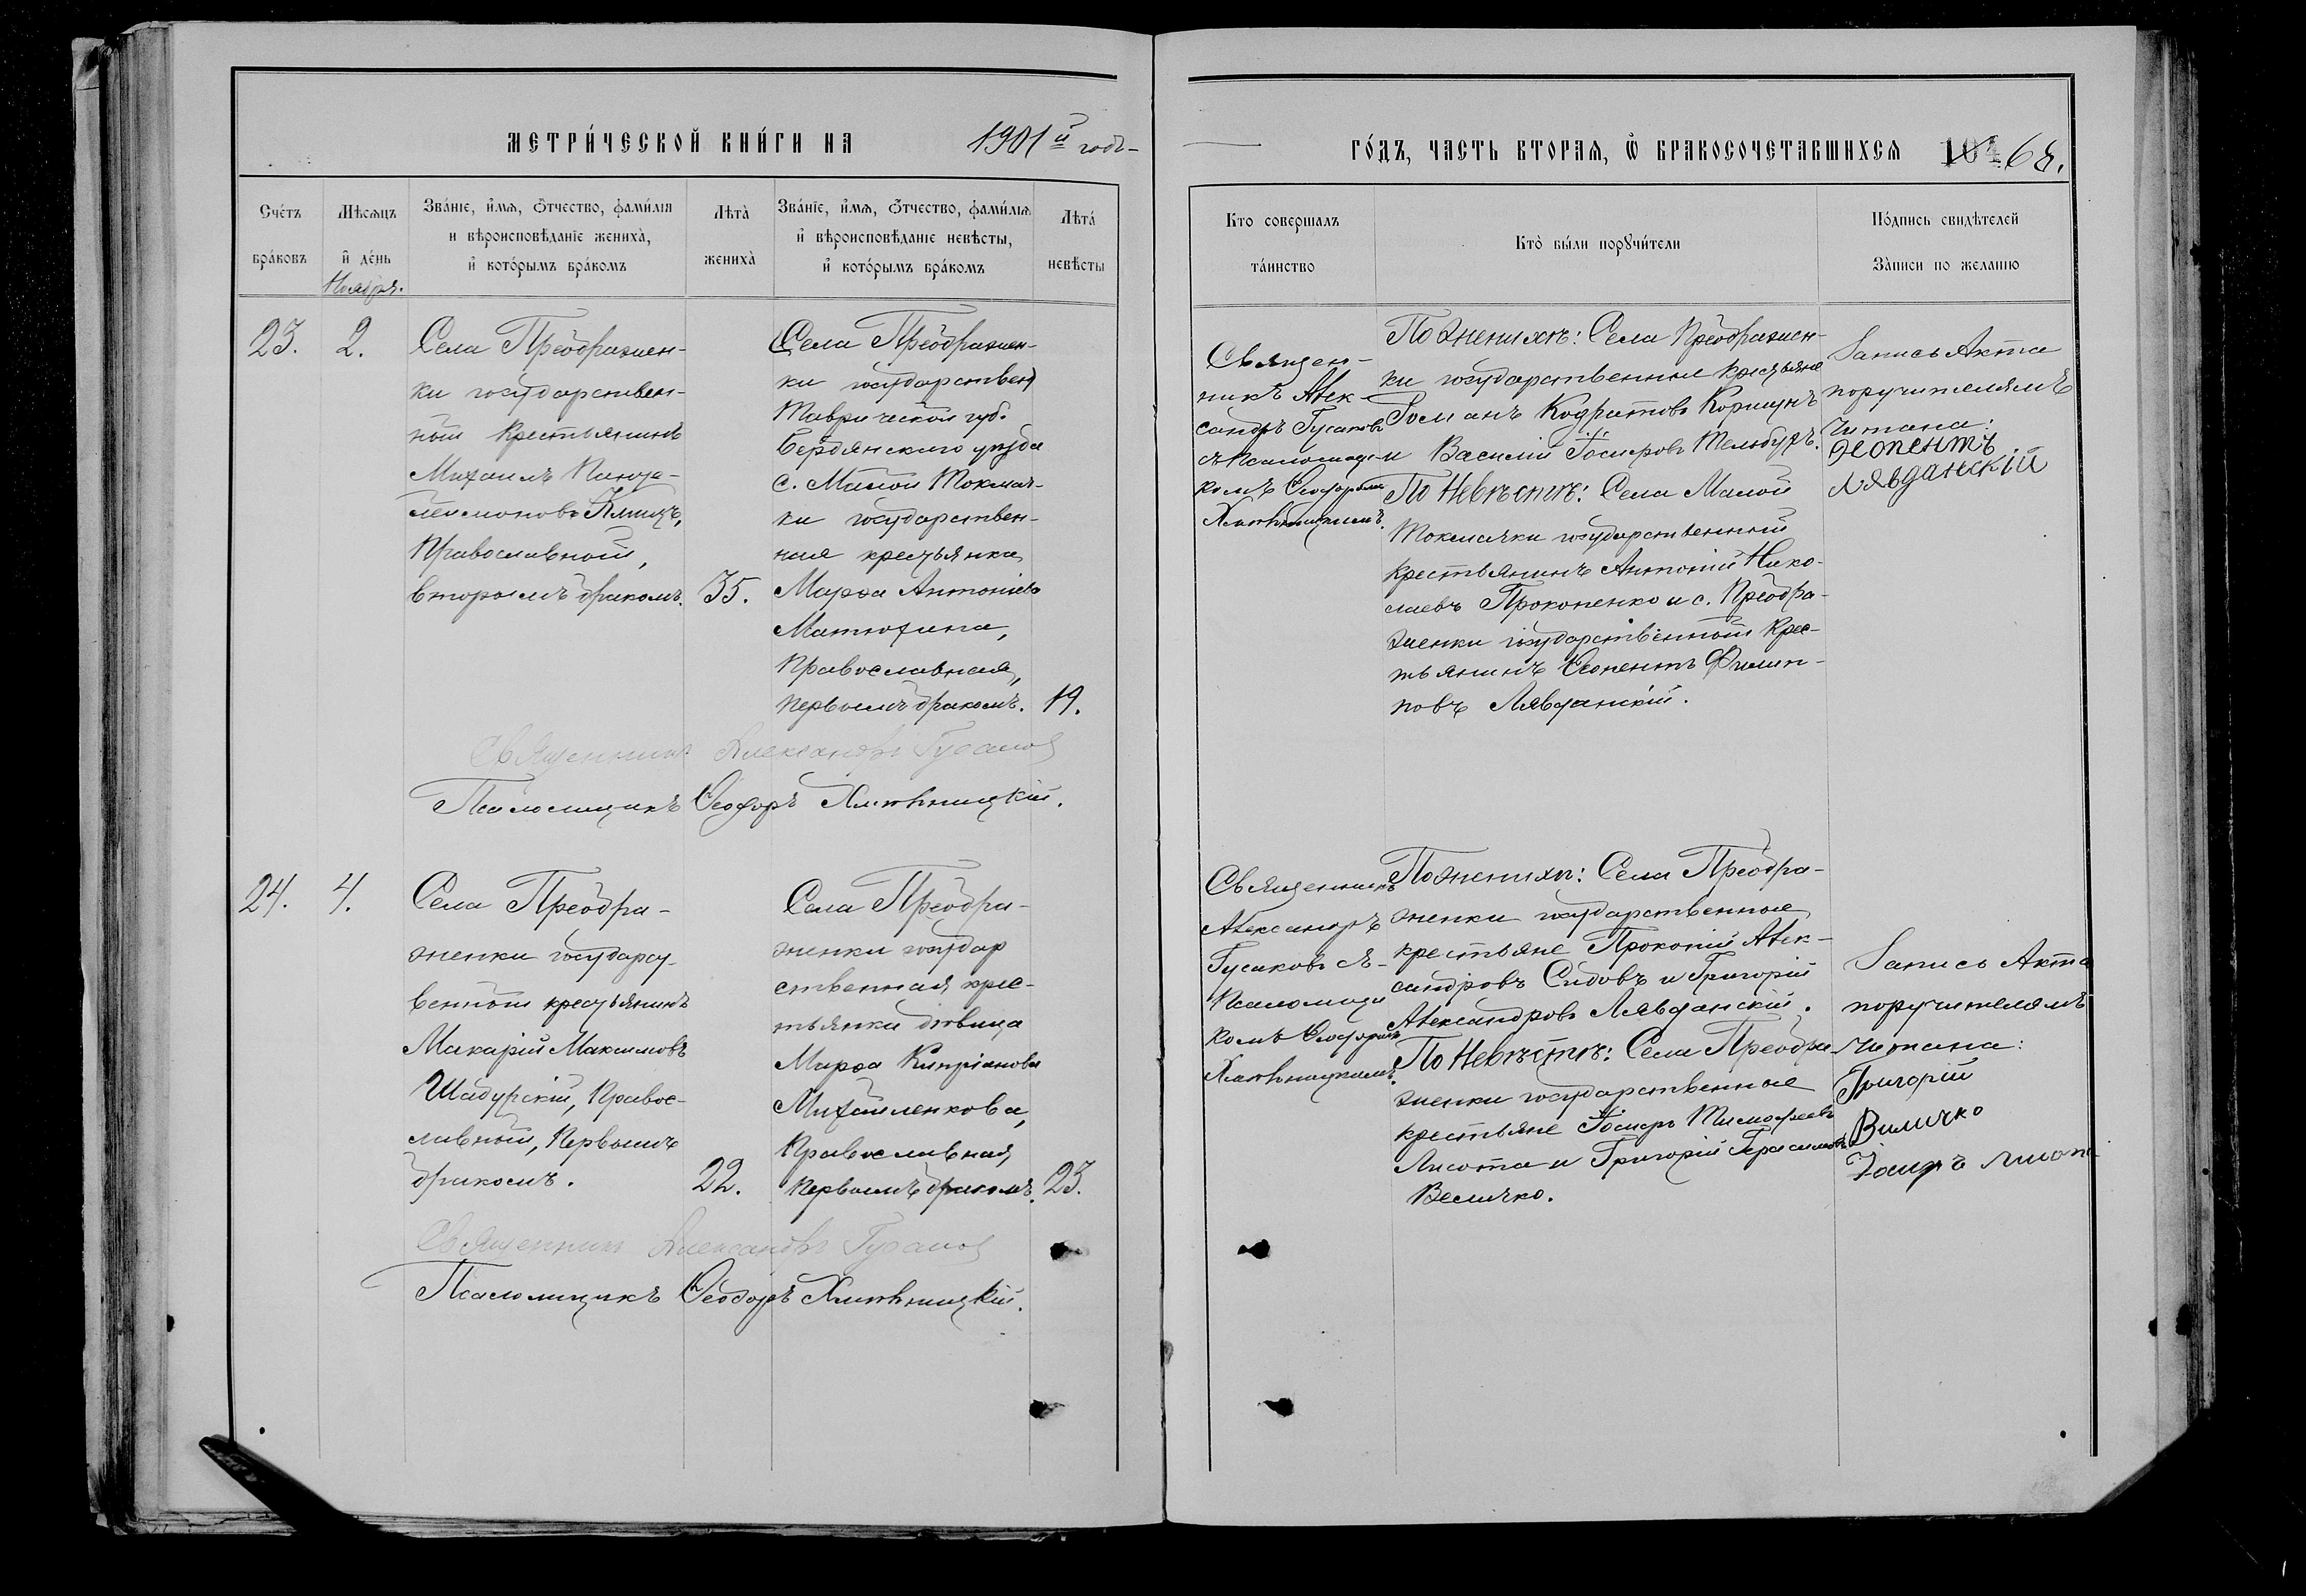 МЕТРИ́ЧЕСКОЙ КНИ́ГИ НА 1901й годъ
Сче́тъ
бра́ковъ
Мѣсяцъ
и҆ де́нь
Ноября.
Зва́нїе, и҆́мя, ѻ҆́тчество, фами́лїя
и вѣроисповѣ́данїе жениха̀,
и҆ кото́рымъ бра́комъ
Лѣта̀
жениха̀
Зва́нїе, и҆́мя, ѻ҆́тчество, фами́лїя
и҆ вѣроисповѣ́данїе невѣ́сты,
и҆ кото́рымъ бра́комъ
Лѣта́
невѣ́сты
23.
2.
Села Преображен-
ки государствен-
ный крестьянинъ
Михаилъ Панте-
леимоновъ
Православный,
вторымъ бракомъ.
35.
Села Преображен-
ки государствен
Таврической губ.
Бердянскаго уѣзда
с. Малой Токмач-
ки государствен-
ная крестьянка
Марѳа Антоніева
Матюхина,
Православная,
первымъ бракомъ.
19.
Священникъ Александръ Гусаковъ
Псаломщикъ Ѳеодоръ Хлѣбницкій.
24.
4.
Села Преобра-
женки государст-
венный крестьянинъ
Макарій Максимовъ
Шадурскій, Правос-
лавный, первымъ
бракомъ.
22.
Села Преобра-
женки государ
ственная крес-
тьянка дѣвица
Марѳа Кипріанова
Михайленкова,
Православная,
первымъ бракомъ.
23.
Священникъ Александръ Гусаковъ
Псаломщикъ Ѳеодоръ Хлѣбницкій.
ГО́ДЪ, ЧАСТЬ ВТОРАЯ, Ѡ҆ БРАКОСОЧЕТАВШИХСЯ 104 68.
Кто совершалъ
та́инство
Кто̀ бы́ли порꙋчи́тели
По́дпись свидѣ́телей
За́писи по желанію
Священ-
никъ Алек-
сандръ Гусаковъ
съ Псаломщи-
комъ Ѳеодоромъ
Хлѣбницкимъ.
По женихѣ: Села Преображен-
ки государственные крестьяне
Романъ Кодратовъ Коршунъ
и Василій Іосифовъ
По невѣстѣ: Села Малой
Токмачки государственный
крестьянинъ Антоній Нико-
лаевъ Прокопенко и с. Преобра-
женки государственный крес-
тьянинъ Ѳеопентъ Филип-
повъ Лявданскій.
Запись Акта
поручителямъ
читана:
Ѳеопентъ
Лявданскій
Священникъ
Александръ
Гусаковъ съ
Псаломщи
комъ Ѳеодоромъ
Хлѣбницкимъ.
По женихѣ: Села Преобра-
женки государственные
крестьяне Прокопій Алек-
сандровъ Сидовъ и Григорій
Александровъ Лявданскій.
По невѣстѣ: Села Преобра-
женки государственные
крестьяне Іосифъ Тимофеевъ
Лисота и Григорій Герасимовъ
Величко.
Запись Акта
поручителямъ
читана:
Григорій
Виличко